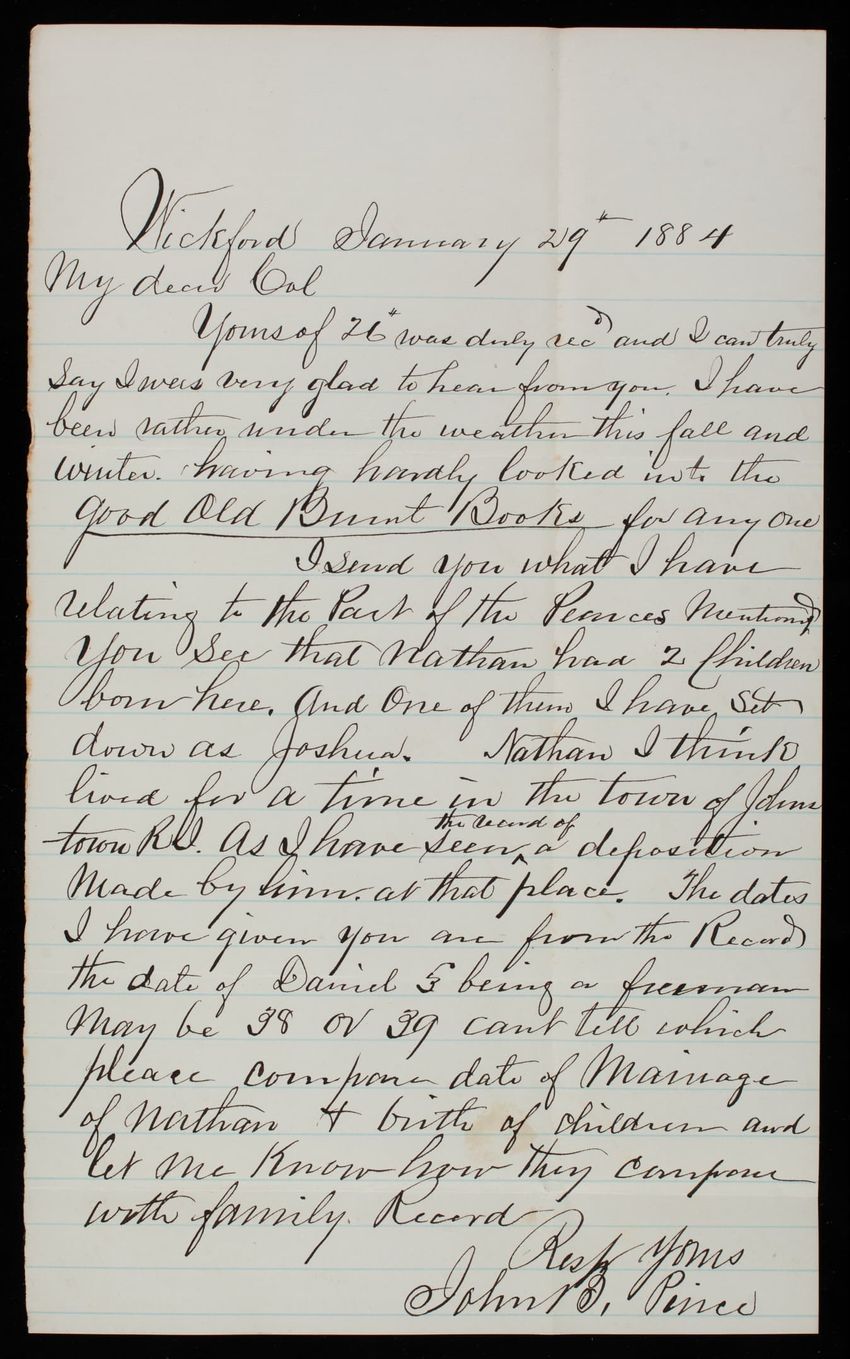 Wickford January 29th 1884
My dear Col
Yours of 26th was duly recd and I can truly
say I was very glad to hear from you. I have
been rather under the weather this fall and
winter. having hardly looked into the
good Old Burnt Books for any one
I send you what I have
relating to the Part of the Pearces Mentioned
You See that Nathan had 2 Children
born here. And One of them I have Set
down as Joshua. Nathan I think
lived for a time in the town of Johns
town R I. As I have seen the record of a deposition
Made by him. at that place. The dates
I have given you are from the Record
the date of Daniel 5 being a freeman
May be 38 or 39 cant tell which
please compare date of Marriage
of Nathan & birth of children and
let me Know how they compare
with family. Record
Resp Yours
John B. Pierce